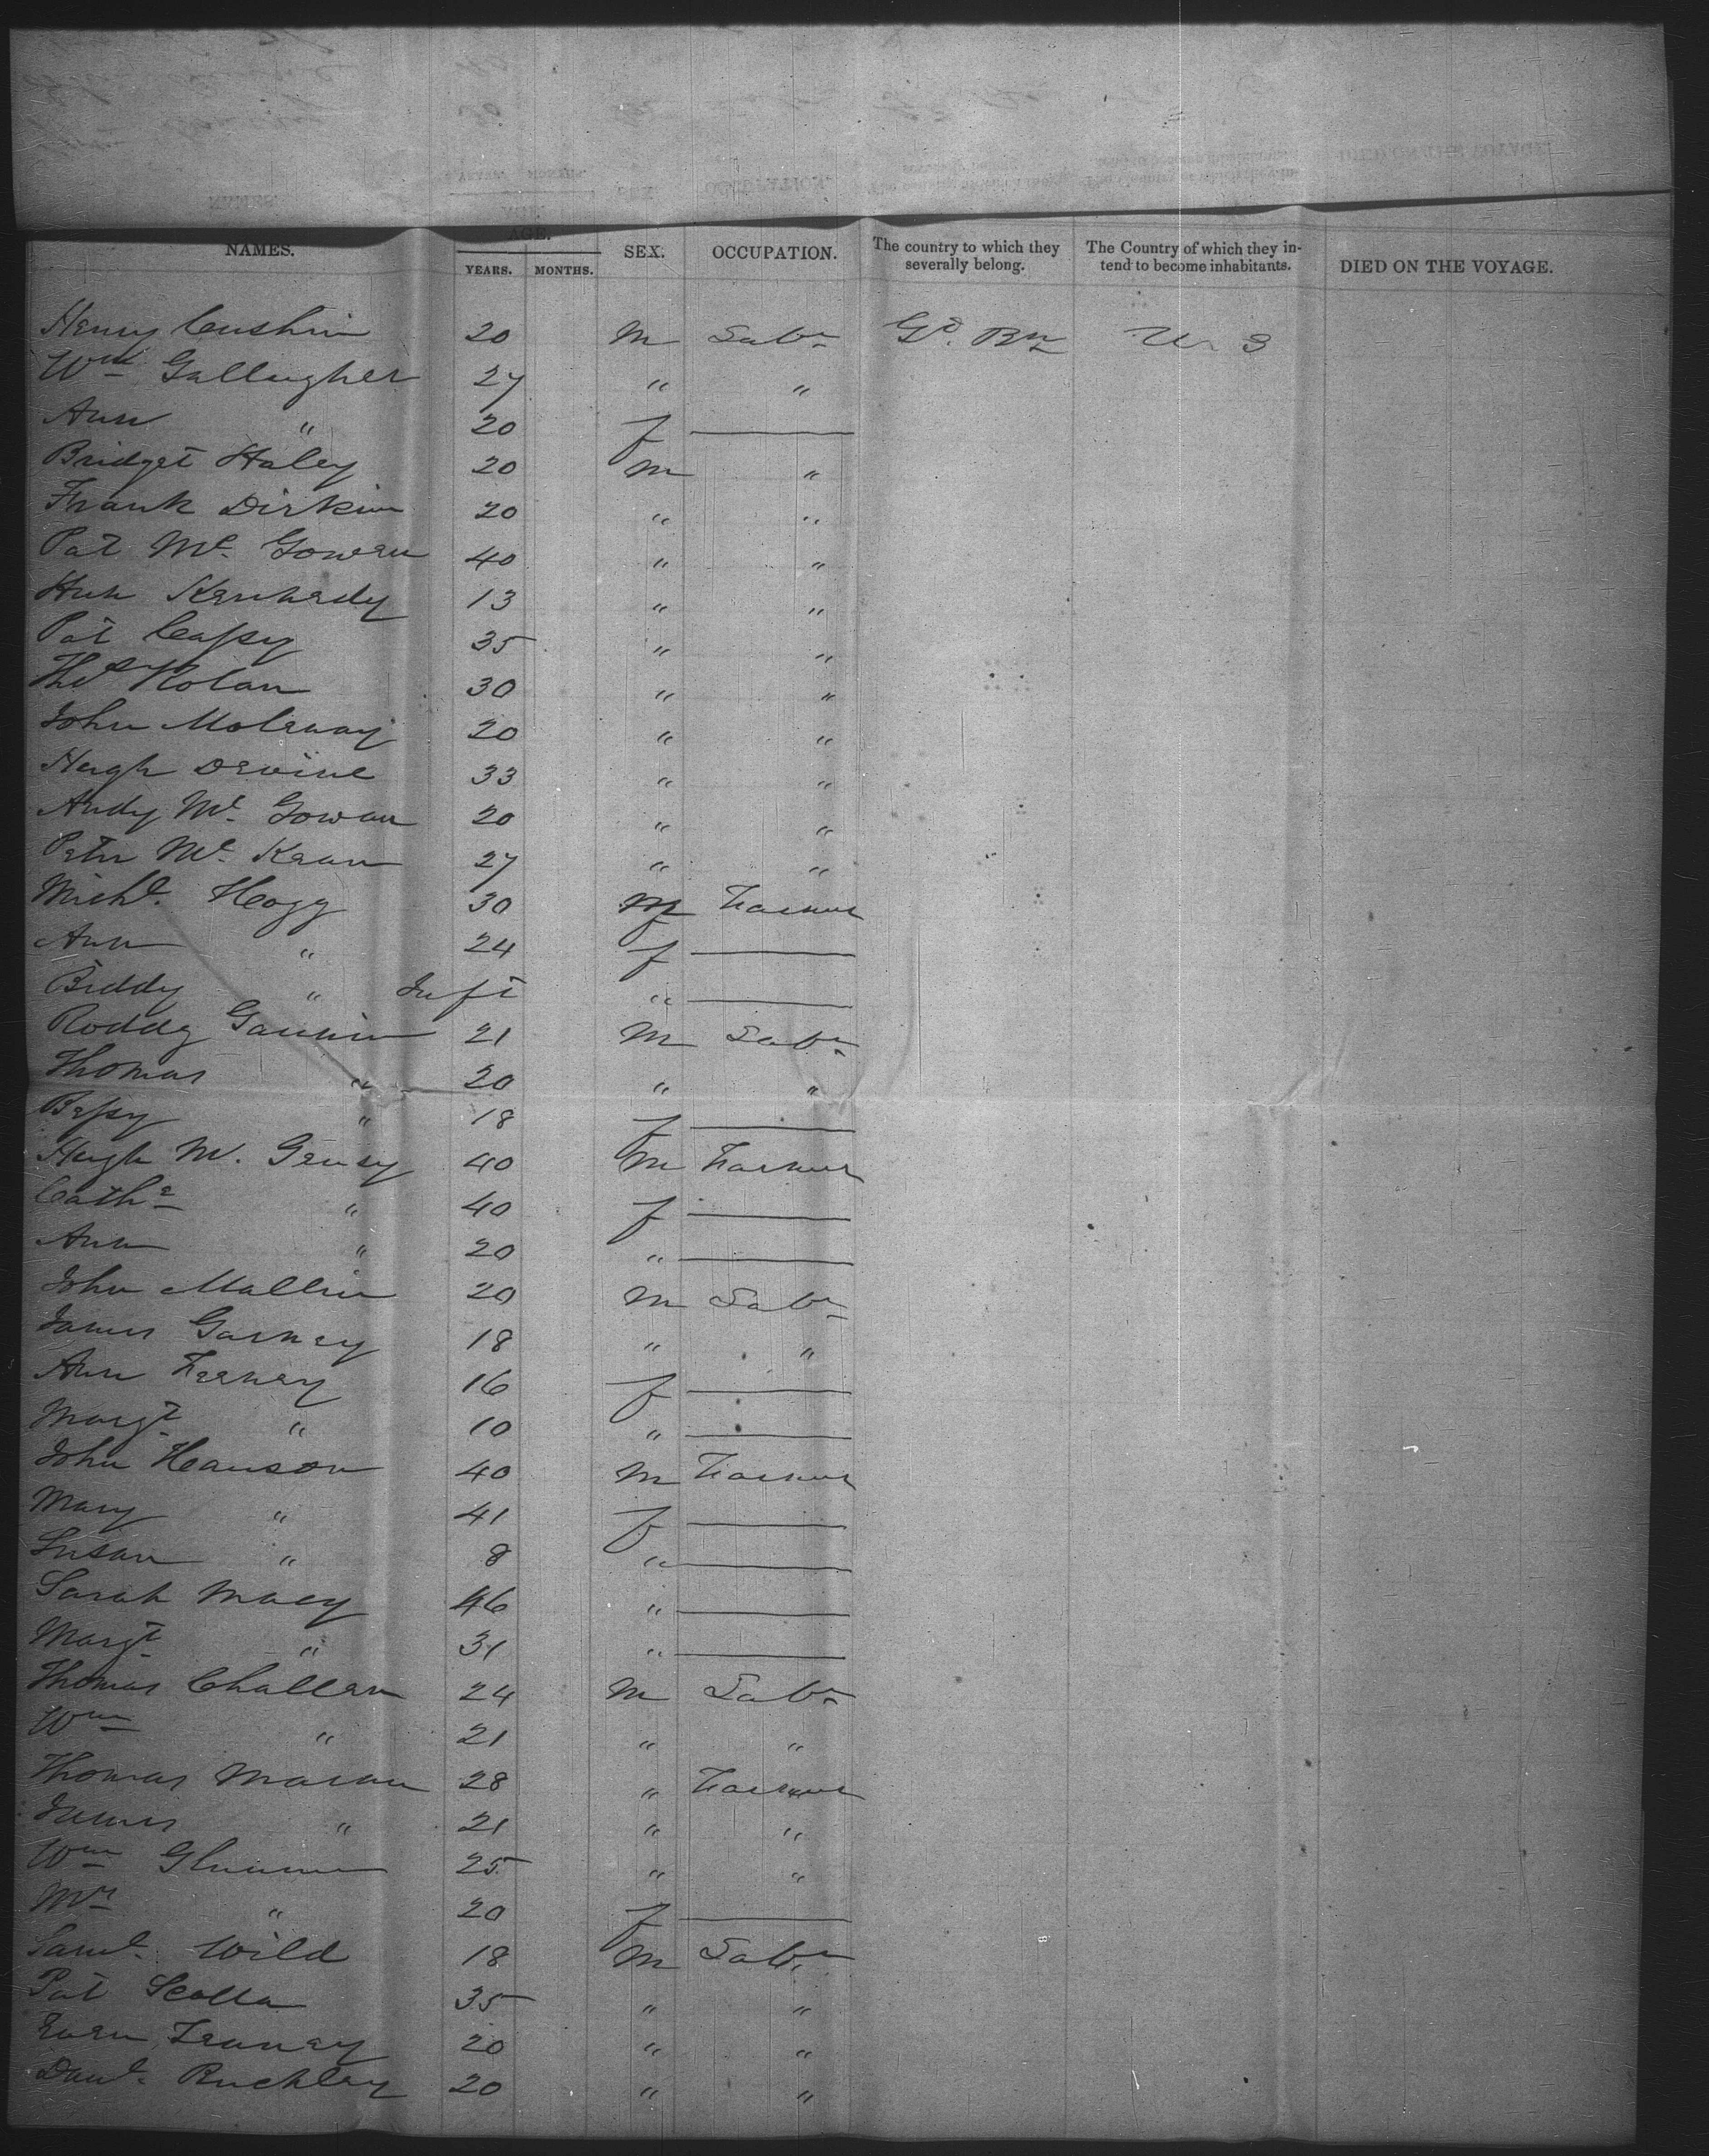 NAMES. AGE. SEX. OCCUPATION. The country to which they severally belong. The Country of which they intend to become inhabitants. DIED ON THE VOYAGE.
YEARS. MONTHS.
Henry Cushin 20 M Labr Gt. Bn U S
Wm Gallagher 27 " "
Ann " 20 f
Bridget Haley 20 M "
Frank Dirkin 20 " "
Pat Mc Gowen 40 " "
Hugh Kennedy 13 " "
Pat Cassy 35 " "
Thos Nolan 30 " "
John Molaway 20 " "
Hugh Devine 33 " "
Andy Mc Gowan 20 " "
Peter Mc Kean 27 " "
Michl. Hogg 30 M Farmer
Ann " 24 f
Biddy " Inft "
Roddy Gannin 21 M Labr
Thomas " 20 " "
Bessy " 18 f
Hugh M. Geusy 40 M Farmer
Cathe " 40 f
Ann " 20 "
John Mallin 20 M Labr
James Garney 18 " "
Ann Feeney 16 f
Margt " 10 "
John Hanson 40 M Farmer
Mary " 41 f
Susan " 8 "
Sarah Macy 46 "
Margt " 31 "
Thomas Challen 24 M Labr
Wm " 21 " "
Thomas Maran 28 " Farmer
James " 21 " "
Wm 25 " "
Mrs " 20 f
Saml. Wild 18 M Labr
Pat Scolla 35 " "
Ewen 20 " "
Danl. Ruchley 20 " "